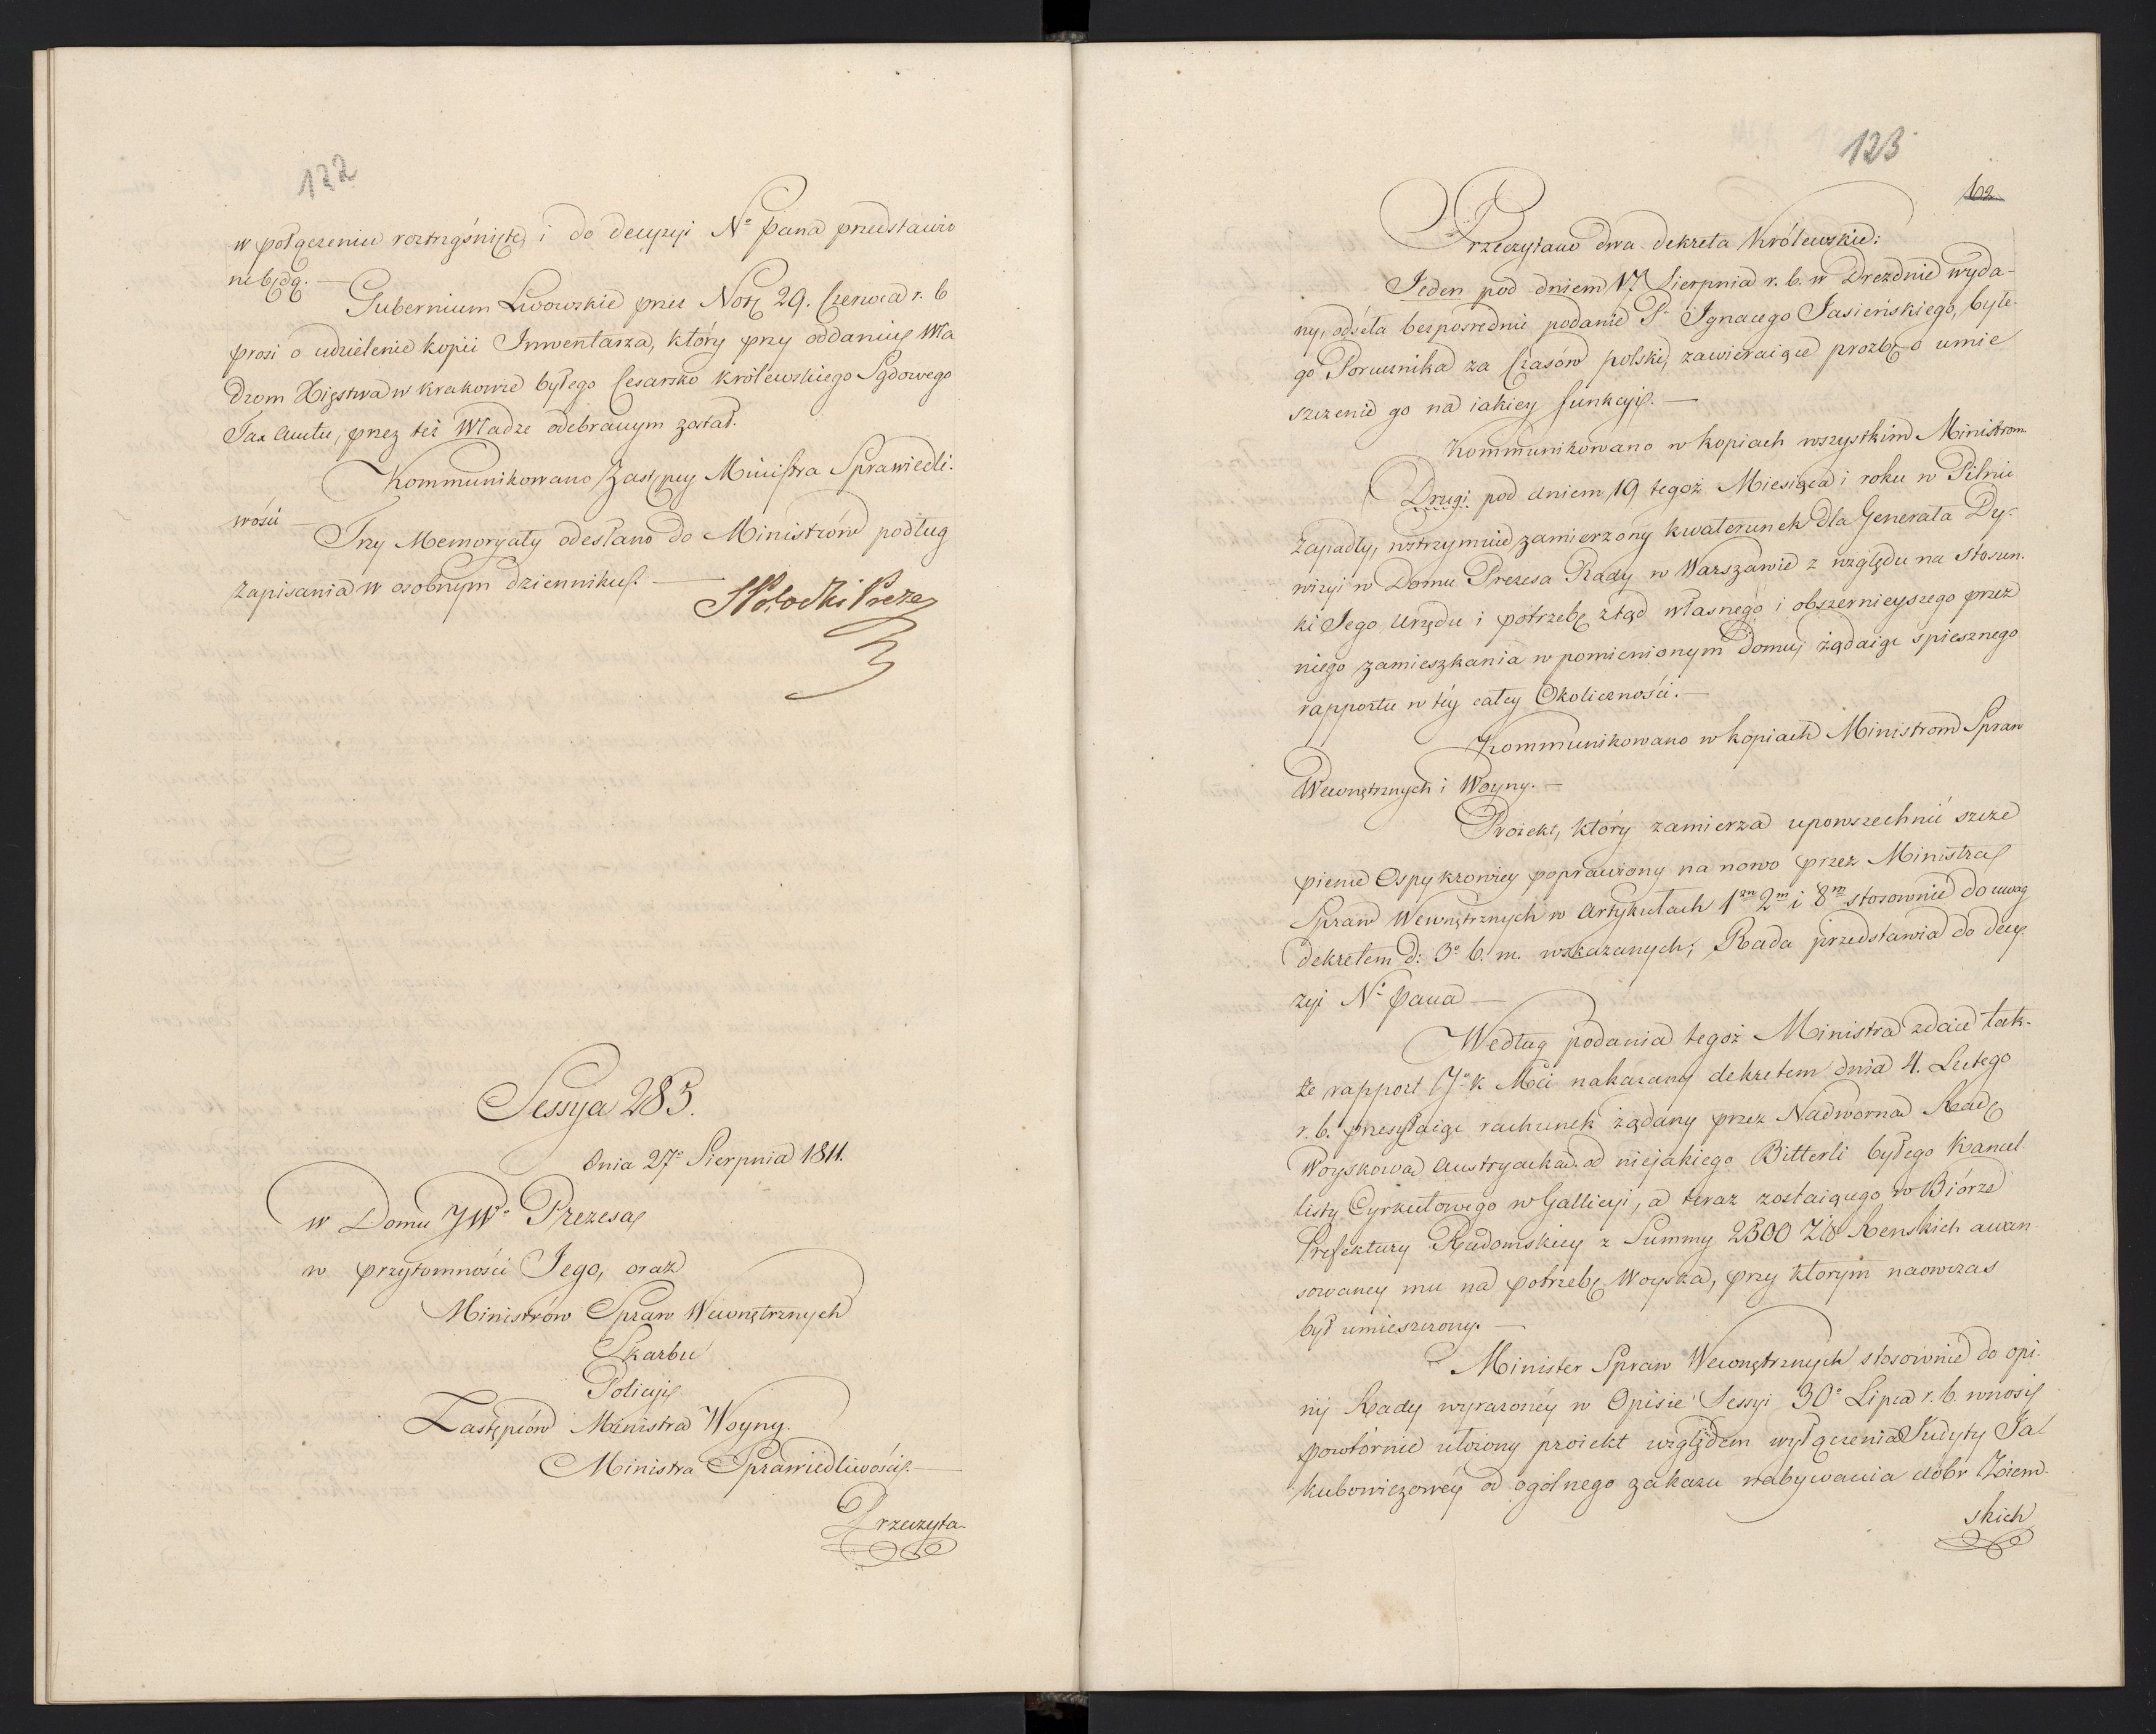 122
w połączeniu roztrząśnięte, i do decyzyi N° Pana przedstawio
ne będą. —
Gubernium Lwowskie przez Notę 29. Czerwca r. b
prosi o udzielenie kopii Inwentarza, który przy oddaniu Wła
dzom Xięstwa w Krakowie byłego Cesarsko Królewskiego Sądowego
Tax Amtu, przez też Władze odebranym został.
Kommunikowano Zastępcy Ministra Sprawiedli-
wości —
Trzy Memoryały odesłano do Ministrów podług
zapisania w osobnym dzienniku. —
SPotocki Prezes
Sessya 285.
dnia 27° Sierpnia 1811.
w Domu JW° Prezesa
w przytomności Jego, oraz
Ministrów Spraw Wewnętrznych
Skarbu
Policyi
Zastępców Ministra Woyny.
Ministra Sprawiedliwości. —
Przeczyta-
123
62
Przeczytano dwa dekreta Królewskie:
Jeden pod dniem 17 Sierpnia r. b. w Dreznie wyda-
ny, odséła bezpośrednie podanie P. Ignacego Jasieńskiego, byłe-
go Porucznika za Czasów polski, zawieraiące prozbę o umie
szczenie go na iakiey funkcyi. —
Kommunikowano w kopiach wszystkim Ministrom
Drugi pod dniem 19 tegoż Miesiąca i roku w Pilnie
zapadły, wstrzymuie zamierzony kwaterunek dla Generała Dy-
wizyi w Domu Prezesa Rady w Warszawie z względu na stosun-
ki Jego Urzędu i potrzebę ztąd własnego i obszernieyszego przez
niego zamieszkania w pomienionym domu, żądaiąc spiesznego
rapportu w téy całey Okoliczności. —
Kommunikowano w kopiach Ministrom Spraw
Wewnętrznych i Woyny. —
Proiekt, który zamierza upowszechnić szcze
pienie Ospy krowiey poprawiony na nowo przez Ministra
Spraw Wewnętrznych w Artykułach 1m 2m i 8m stosownie do uwag
dekretem d: 3° b. m. wskazanych; Rada przedstawia do decy
zyi N° Pana —
Według podania tegoż Ministra zdaie tak-
że rapport J° K Mci nakazany dekretem dnia 4. Lutego
r. b. przesyłaiąc rachunek żądany przez Nadworną Radę
Woyskową Austryacką od niejakiego Bitterli byłego Kancel-
listy Cyrkułowego w Gallicyi, a teraz zostaiącego w Biórze
Prefektury Radomskiey z Summy 2500 Złł Renskich awan-
sowaney mu na potrzebę Woyska, przy którym naowczas
był umieszczony. —
Minister Spraw Wewnętrznych stosownie do opi-
nij Rady wyrazonéy w Opisie Sessyi 30° Lipca r. b. wnosi
powtórnie ułożony proiekt względem wyłączenia Judyty Ja
kubowiczowéy od ogólnego zakazu nabywania dóbr Ziem-
skich